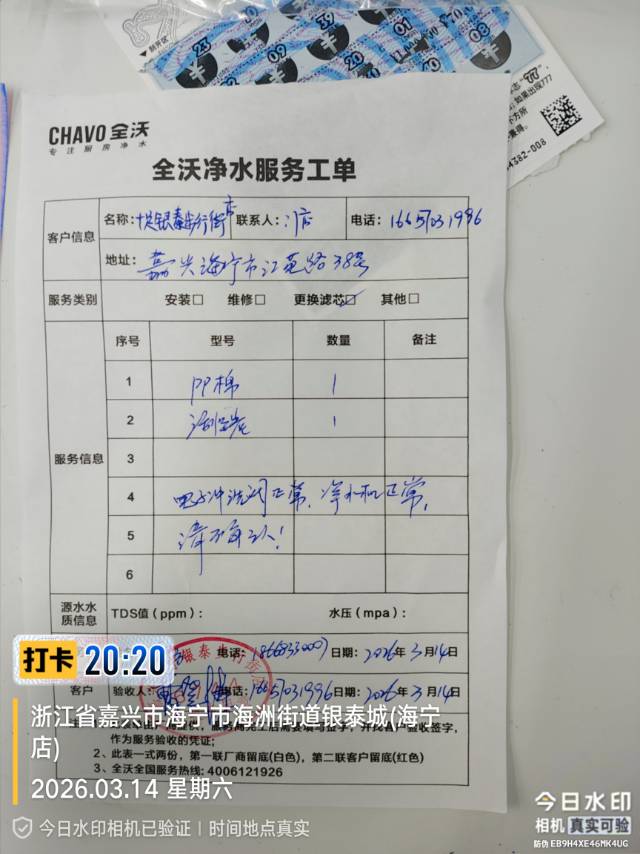 23
09
39
20
20
01
08
如果出现777
4382-008
CHAVO 全沃
专注厨房净水
全沃净水服务工单
客户信息
名称：
银泰步行街店
联系人：
门店
电话：
16657031996
地址：
嘉兴海宁市江苑路38号
服务类别
安装□ 维修□ 更换滤芯☑ 其他□
服务信息
序号 型号 数量 备注
1 PP棉 1
2 活性炭 1
3
4 电子冲洗阀正常，净水机正常，
5 请确认！
6
源水水质信息
TDS值（ppm）： 水压（mpa）：
电话： 日期：2026年3月14日
客户 验收人： 电话：16657031996 日期：2026年3月14日
作为服务验收的凭证；
2、此表一式两份，第一联厂商留底(白色)，第二联客户留底(红色)
3、全沃全国服务热线：4006121926
打卡 20:20
浙江省嘉兴市海宁市海洲街道银泰城(海宁店)
2026.03.14 星期六
今日水印相机已验证 | 时间地点真实
今日水印
相机 真实可验
防伪 EB9H4XE46MK4UG